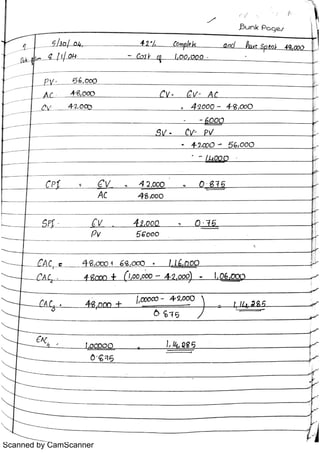 Bunk Pages
9 5/10/04. 42% Complete and have spent 48,000
8/1/04 - Cost of 1,00,000.
PV - 56,000
AC 48,000 CV = EV - AC
EV 42,000 = 42000 - 48,000
= -6000
SV = EV - PV
= 42000 - 56,000
= - 14000
CPI = EV = 42,000 = 0.875
AC 48,000
SPI = EV = 42,000 = 0.75
PV 56000
EAC, = 48,000 + 68,000 = 1,16,000
EAC2 = 48000 + (1,00,000 - 42,000) = 1,06,000
EAC3 = 48,000 + ( 100000 - 42000 ) = 1,14,285
0.875
EAC4 = 1,00000 = 1,14,285
0.875
Scanned by CamScanner